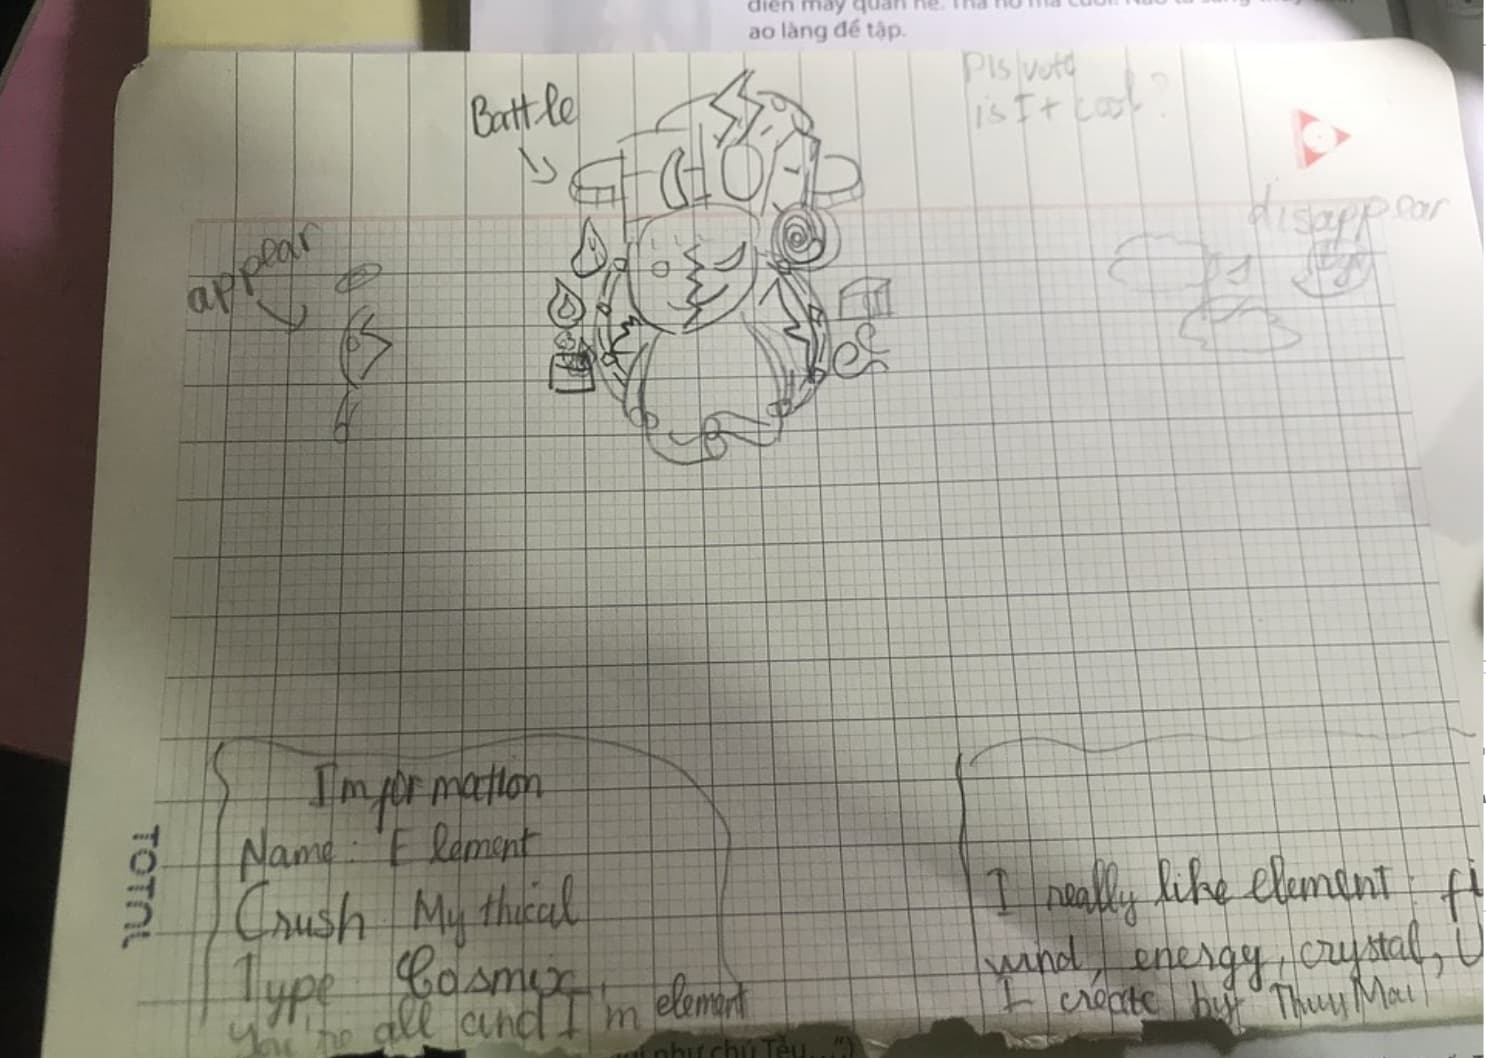 ao làng để tập.
Pls vote
is It cool?
Battle
disappear
appear
Imformation
Name: Element
Crush Mythical
Type Cosmix
You're all and I'm element
I really like element: fi
wind, energy, crystal, U
I create by Thuy Mai
TOTAL
như chú Tễu...")